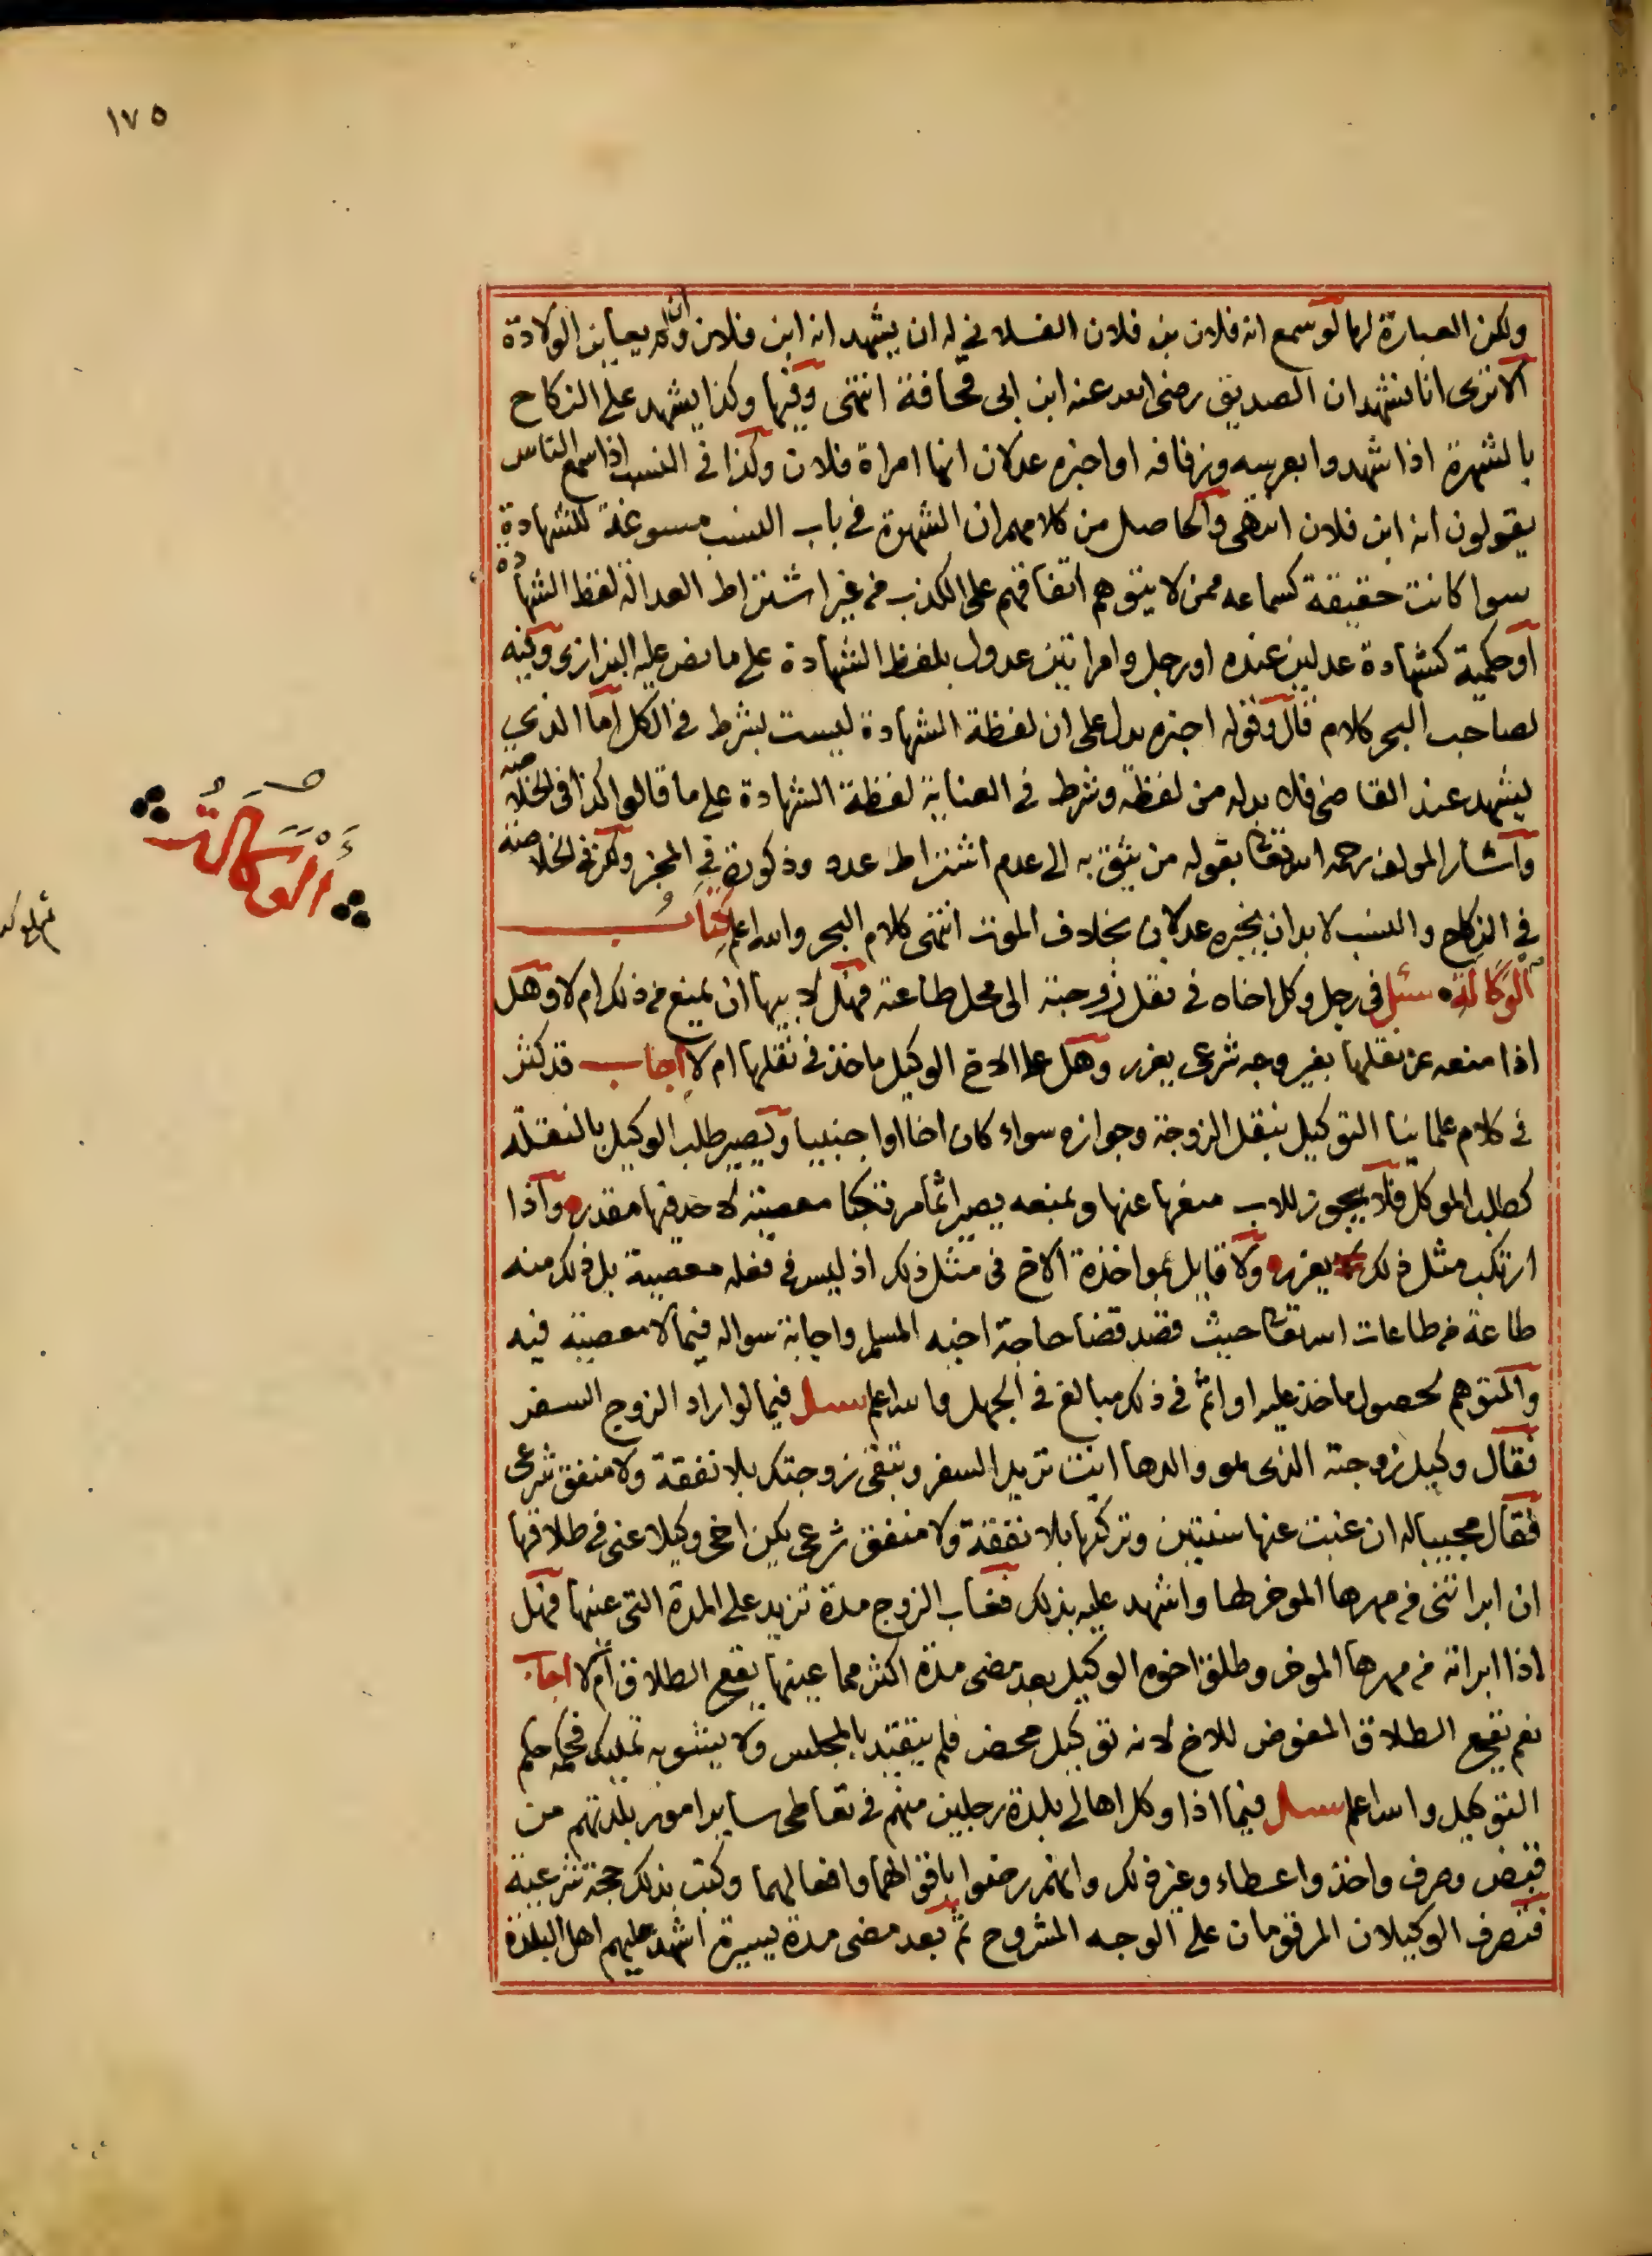 ١٧٥
ولكن العبارة لها لو سمع انه فلان بن فلان الفلاني له ان يشهد انه ابن فلان وان لم يعاين الولادة
الا ترى انا نشهد ان الصديق رضى الله عنه ابن ابى قحافة انتهى وفيها وكذا يشهد على النكاح
بالشهرة اذا شهدوا بعرسه وزفافه او اخبره عدلان انها امراة فلان وكذا في النسب اذا سمع الناس
يقولون انه ابن فلان انتهى والحاصل من كلامهم ان الشهرة في باب النسب مسوغة للشهادة
سوا كانت حقيقة كسماعه ممن لا يتوهم اتفاقهم على الكذب من غير اشتراط العدالة لفظ الشهادة
او حكمية كشهادة عدلين عنده او رجل وامراتين عدول بلفظ الشهادة على ما نص عليه البزازى وفيه
لصاحب البحر كلام قال وقوله اخبره يدل على ان لفظة الشهادة ليست بشرط في الكل اما الذي
يشهد عند القاضى فلا بد له من لفظة وشرط في العناية لفظة الشهادة على ما قالوا كذا في الخلاصة
واشار المولف رحمه الله تعالى بقوله من يثق به الى عدم اشتراط عدد وذكورة في المخبر ولكن في الخلاصة
في النكاح والنسب لا بد ان يخبره عدلان بخلاف الموت انتهى كلام البحر والله اعلم كتاب
الوكالة سئل في رجل وكل اخاه في نقل زوجته الى محل طاعته فهل لابيها ان يمنع من ذلك ام لا وهل
اذا منعه عن نقلها بغير وجه شرعى يعزر وهل على الاخ الوكيل ماخذ في نقلها ام لا اجاب قد كثر
في كلام علمائنا التوكيل بنقل الزوجة وجوازه سواء كان اخا او اجنبيا ويصير طلب الوكيل بالنقلة
كطلب الموكل فلا يجوز للاب منعها عنها وبمنعه يصير اثما مرتكبا معصية لا حد فيها مقدر واذا
ارتكب مثل ذلك يعزر ولا قايل بمواخذة الاخ في مثل ذلك اذ ليس في فعله معصية بل ذلك منه
طاعة من طاعات الله تعالى حيث قصد قضا حاجة اخيه المسلم واجابة سواله فيما لا معصية فيه
والمتوهم لحصول ماخذ عليه او اثم في ذلك مبالغ في الجهل والله اعلم سئل فيما لو اراد الزوج السفر
فقال وكيل زوجته الذى هو والدها انت تريد السفر وتبقى زوجتك بلا نفقة ولا منفق شرعى
فقال مجيبا له ان غبت عنها سنتين وتركتها بلا نفقة ولا منفق شرعى يكن اخى وكيلا عنى في طلاقها
ان ابراتنى من مهرها الموخر لها واشهد عليه بذلك فغاب الزوج مدة تزيد على المدة التى عينها فهل
اذا ابراته من مهرها الموخر وطلق اخوه الوكيل بعد مضى مدة اكثر مما عينها يقع الطلاق ام لا اجاب
نعم يقع الطلاق المفوض للاخ لانه توكيل محض فلم يتقيد بالمجلس ولا يشوبه تمليك فحكمه حكم
التوكيل والله اعلم سئل فيما اذا وكل اهالى بلدة رجلين منهم في تعاطى ساير امور بلدتهم من
قبض وصرف واخذ واعطاء وغير ذلك وانهم رضوا باقوالهما وافعالهما وكتب بذلك حجة شرعية
فتصرف الوكيلان المرقومان على الوجه المشروح ثم بعد مضى مدة يسيرة اشهد عليهم اهل البلدة
الوكالة